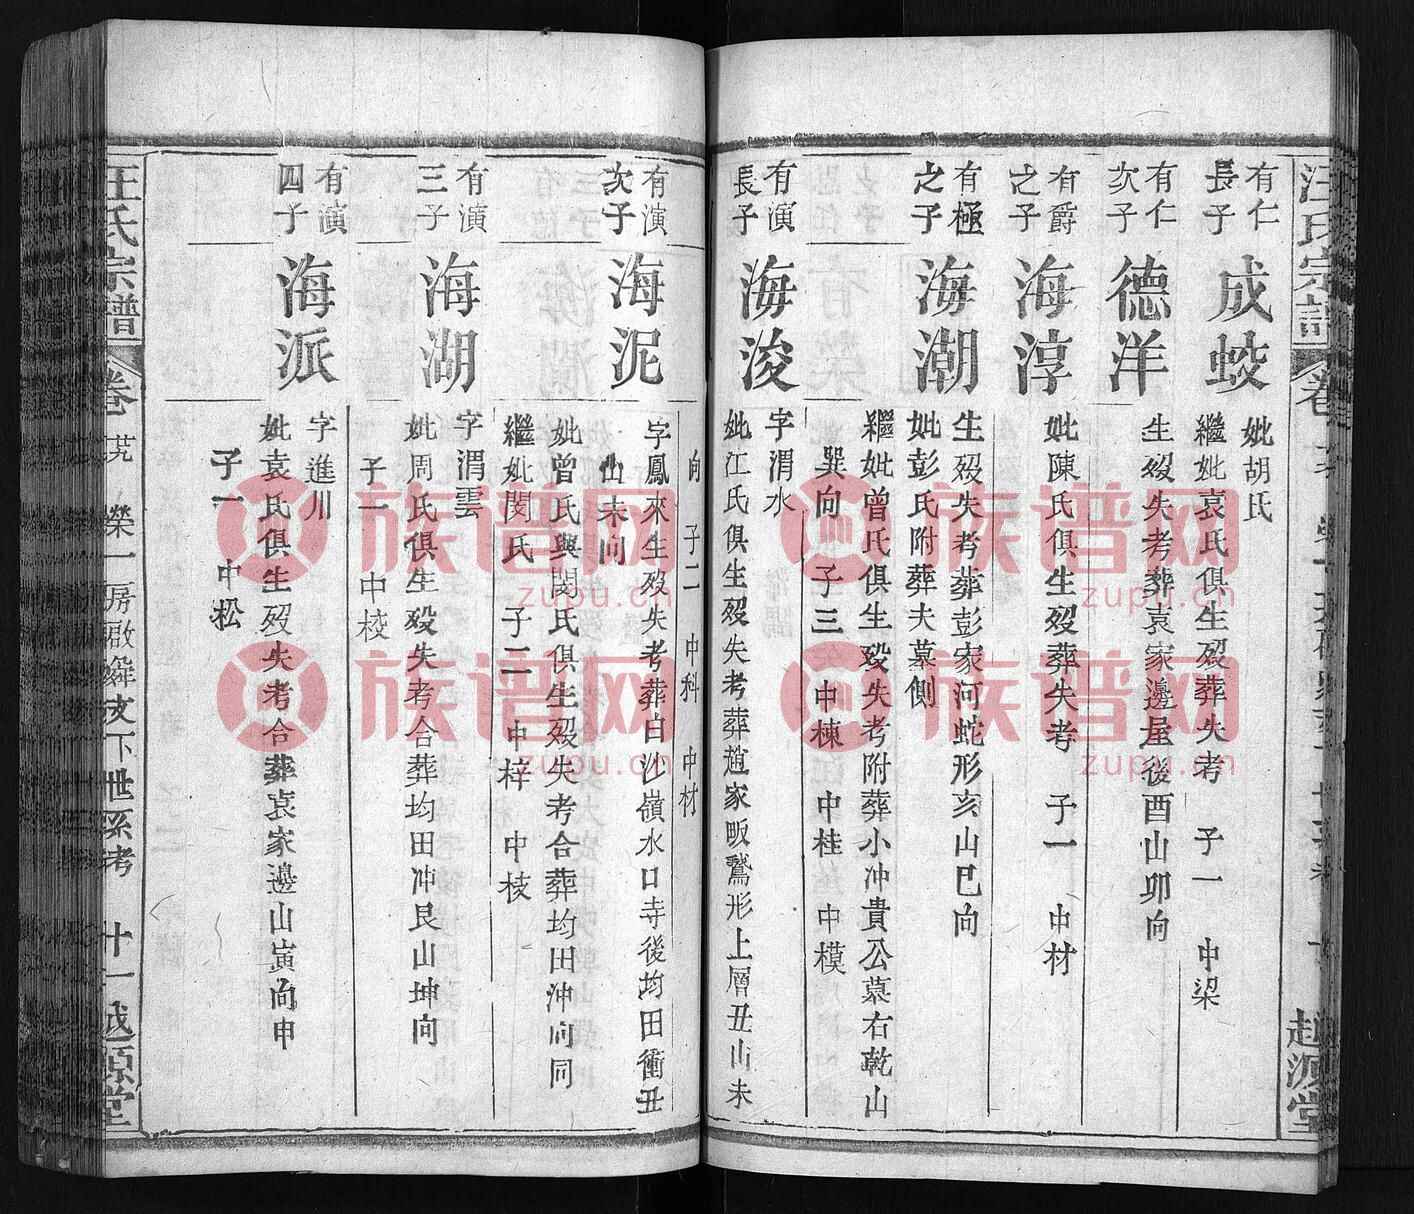 汪氏宗譜
卷
越源堂
有仁
長子
成蛟
妣胡氏
繼妣袁氏俱生殁葬失考 子一 中梁
有仁
次子
德洋
生殁失考葬袁家邊屋後酉山卯向
有爵
之子
海淳
妣陳氏俱生殁葬失考 子一 中材
有極
之子
海潮
生殁失考葬彭家河蛇形亥山巳向
妣彭氏附葬夫墓側
繼妣曾氏俱生殁失考附葬小沖貴公墓右乾山
巽向 子三 中棟 中桂 中模
有演
長子
海浚
字渭水
妣江氏俱生殁失考葬趙家畈鵞形上層丑山未
向 子二 中科 中材
有演
次子
海泥
字鳳來生殁失考葬白沙嶺水口寺後均田衝丑
山未向
妣曾氏與閔氏俱生殁失考合葬均田沖向同
繼妣閔氏 子二 中梓 中枝
有演
三子
海湖
字渭雲
妣周氏俱生殁失考合葬均田沖艮山坤向
子一 中校
有演
四子
海派
字進川
妣袁氏俱生殁失考合葬袁家邊山寅向申
子一 中松
汪氏宗譜
卷
榮一房啟
文下世系考
十一
越源堂
族谱网
zupu.cn
族谱网
zupu.cn
族谱网
zupu.cn
族谱网
zupu.cn